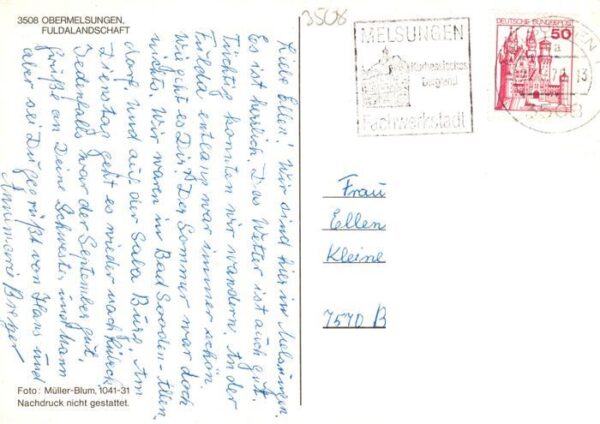 3508 OBERMELSUNGEN,
FULDALANDSCHAFT
3508
MELSUNGEN
Kurhessisches
Bergland
Fachwerkstadt
DEUTSCHE BUNDESPOST
50
3508
Liebe Ellen! Wir sind hier in Melsungen.
Es ist herrlich. Das Wetter ist auch gut.
Tüchtig konnten wir wandern. An der
Fulda entlang war immer schön.
Wie geht es Dir? Der Sommer war doch
nichts. Wir waren in Bad Sooden-Allen
dorf. Und auf der Burg. Am
Dienstag geht es wieder nach
Jedenfalls war der September gut.
Grüße an Deine Schwester und Mann
aber sei Du gegrüßt von Hans und
Annimarie
Frau
Ellen
Kleine
7570 B
Foto: Müller-Blum, 1041-31
Nachdruck nicht gestattet.